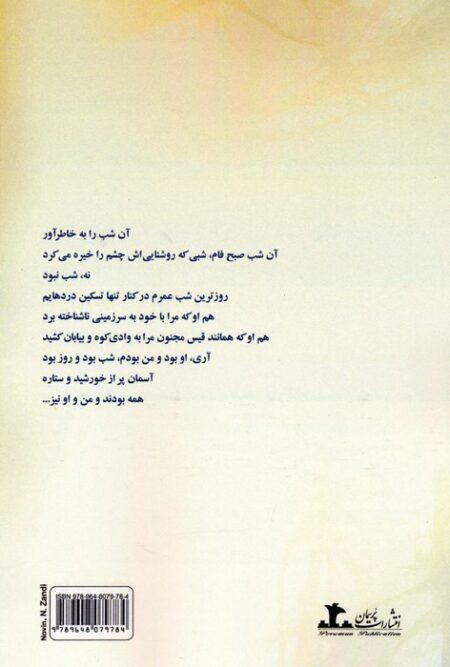 آن شب را به خاطرآور
آن شب صبح فام، شبی که روشنایی‌اش چشم را خیره می‌کرد
نه، شب نبود
روزترین شب عمرم در کنار تنها تسکین دردهایم
هم او که مرا با خود به سرزمینی ناشناخته برد
هم او که همانند قیس مجنون مرا به وادی کوه و بیابان کشید
آری، او بود و من بودم، شب بود و روز بود
آسمان پر از خورشید و ستاره
همه بودند و من و او نیز...
Novin. N. Zandi
ISBN 978-964-8079-78-4
9 789648 079784
انتشارات پُرسِمان
Porseman Publication